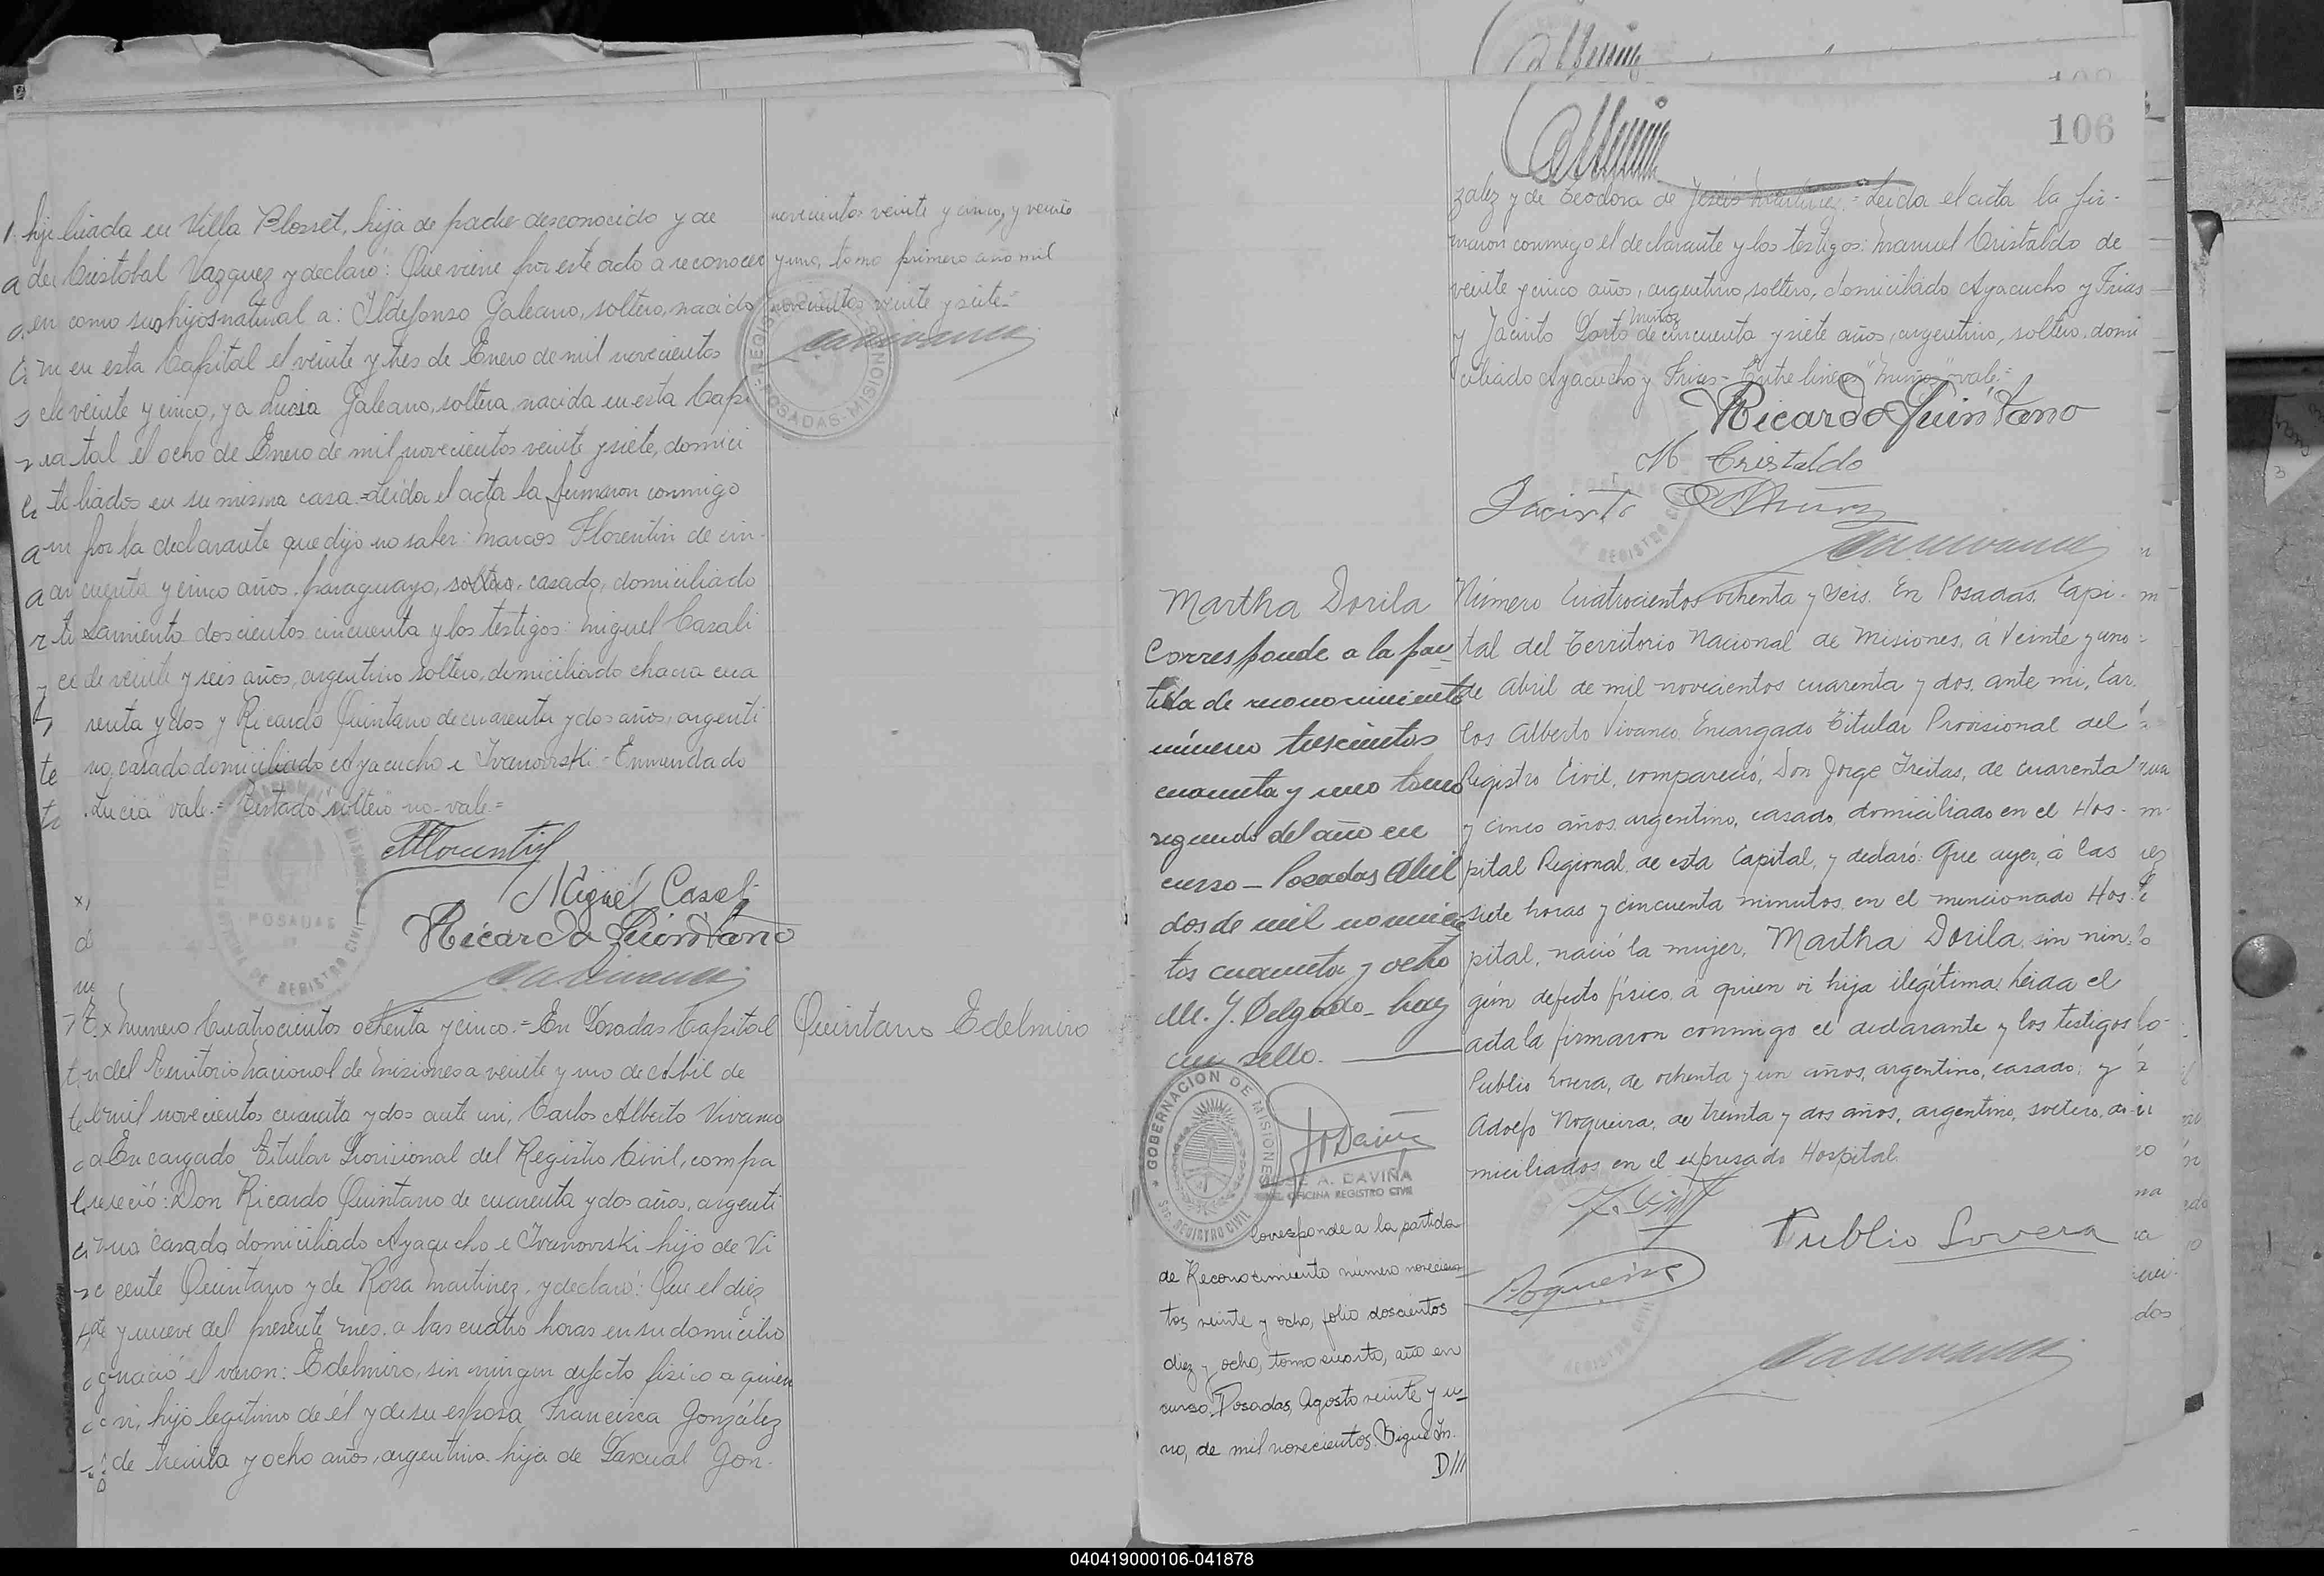 liciliada en Villa Blosset, hija de padre desconocido y de
Cristobal Vazquez y declaró: Que viene por este acto a reconocer
como sus hijos natural a: Ildefonso Galeano, soltero, nacido
en esta Capital el veinte y tres de Enero de mil novecientos
veinte y cinco, y a Lucia Galeano, soltera, nacida en esta Capi
tal el ocho de Enero de mil novecientos veinte y siete, domici
liados en su misma casa.=Leida el acta la firmaron conmigo
por la declarante que dijo no saber: Marcos Florentin de cin-
cuenta y cinco años, paraguayo, soltero, casado, domiciliado
Sarmiento doscientos cincuenta y los testigos: Miguel Casali
de veinte y seis años, argentino soltero, domiciliado chacra cua
renta y dos y Ricardo Quintano de cuarenta y dos años, argenti
no, casado domiciliado Ayacucho e Ivanovski - Enmendado
"Lucia" vale.= Testado "soltero" no-vale=
novecientos veinte y cinco, y veinte
y uno, tomo primero año mil
novecientos veinte y siete=
REGISTRO
POSADAS-MISIONES
MFlorentin
Miguel Casali
Ricardo Quintano
POSADAS
DE REGISTRO CIVIL
Numero Cuatrocientos ochenta y cinco.= En Posadas Capital
del Territorio Nacional de Misiones a veinte y uno de Abril de
mil novecientos cuarenta y dos ante mi, Carlos Alberto Vivanco
Encargado Titular Provisional del Registro Civil, compa
reció: Don Ricardo Quintano de cuarenta y dos años, argenti
no casado domiciliado Ayacucho e Ivanovski hijo de Vi
cente Quintano y de Rosa Martinez, y declaró: Que el diez
y nueve del presente mes, a las cuatro horas en su domicilio
nació el varon: Edelmiro, sin ningun defecto fisico a quien
vi, hijo legitimo de él y de su esposa Francisca González
de treinta y ocho años, argentina hija de Pascual Gon-
Quintano Edelmiro
106
zalez y de Teodora de Jesús Martinez.= Leida el acta la fir-
maron conmigo el declarante y los testigos: Manuel Cristaldo de
veinte y cinco años, argentino, soltero, domiciliado Ayacucho y Frias
Muñoz
y Jacinto de cincuenta y siete años, argentino, soltero, domi
ciliado Ayacucho y Frias - Entre lineas "Muñoz" vale=
Ricardo Quintano
M Cristaldo
Jacinto Muñoz
DE REGISTRO CIVIL
Martha Dorila
Corresponde a la par-
tida de reconocimiento
número trescientos
cuarenta y uno tomo
segundo del año en
curso - Posadas Abril
dos de mil novecien
tos cuarenta y ocho
M. J. Delgado - hay
un sello.
GOBERNACION DE MISIONES
REGISTRO CIVIL
A. DAVIÑA
OFICINA REGISTRO CIVIL
Corresponde a la partida
de Reconocimiento número novecien-
tos veinte y ocho, folio doscientos
diez y ocho, tomo cuarto, año en
curso. Posadas, Agosto veinte y u-
no, de mil novecientos. Sigue In.
D///
Número Cuatrocientos ochenta y seis. En Posadas, Capi-
tal del Territorio Nacional de Misiones, á Veinte y uno
de Abril de mil novecientos cuarenta y dos, ante mi, Car-
los Alberto Vivanco, Encargado Titular Provisional del
Registro Civil, compareció, Don Jorge Freitas, de cuarenta
y cinco años, argentino, casado, domiciliado en el Hos-
pital Regional de esta Capital, y declaró: Que ayer, á las
siete horas y cincuenta minutos, en el mencionado Hos-
pital, nació la mujer, Martha Dorila, sin nin-
gún defecto físico, á quien vi hija ilegítima, leida el
acta la firmaron conmigo el declarante y los testigos
Publio Lovera, de ochenta y un años, argentino, casado, y
Adolfo Noqueira, de treinta y dos años, argentino, soltero, do-
miciliados en el expresado Hospital.
Publio Lovera
Noqueira
040419000106-041878